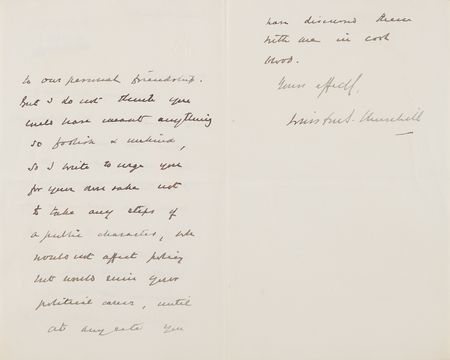 to our personal friendship.
But I do not think you
could have meant anything
so foolish & unkind,
So I write to urge you
for your own sake not
to take any steps of
a public character, wh
would not affect policy
but would ruin your
political career, until
at any rate you
have discussed them
with me in cool
blood.
Yours affectly,
Winston S. Churchill